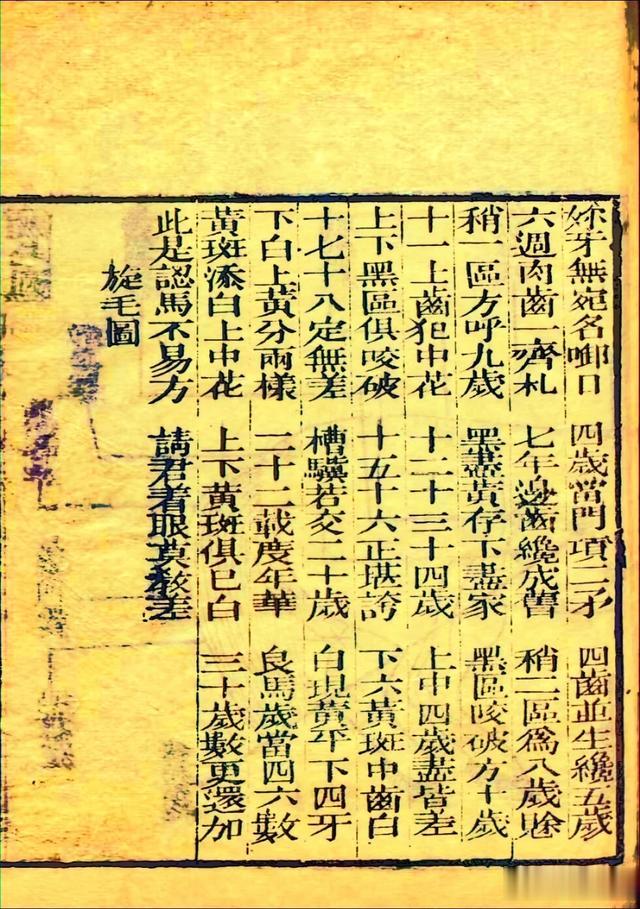 牙無宛名啣口　四歲當門項二才　四齒並生纔五歲
六週肉齒一齊札　七年邊齒纔成舊　稍二區為八歲
稍一區方呼九歲　墨盡黃存下盡家　黑區咬破方十歲
十一上齒犯中花　十二十三十四歲　上中四歲盡皆差
上下黑區俱咬破　十五十六正堪誇　下六黃斑中齒白
十七十八定無差　槽驥若交二十歲　白現黃平下四牙
下白上黃分兩樣　二十二載度年華　良馬歲當四六數
黃斑添白上中花　上下黃斑俱已白　三十歲數更還加
此是認馬不易方　請君着眼莫教差
旋毛圖